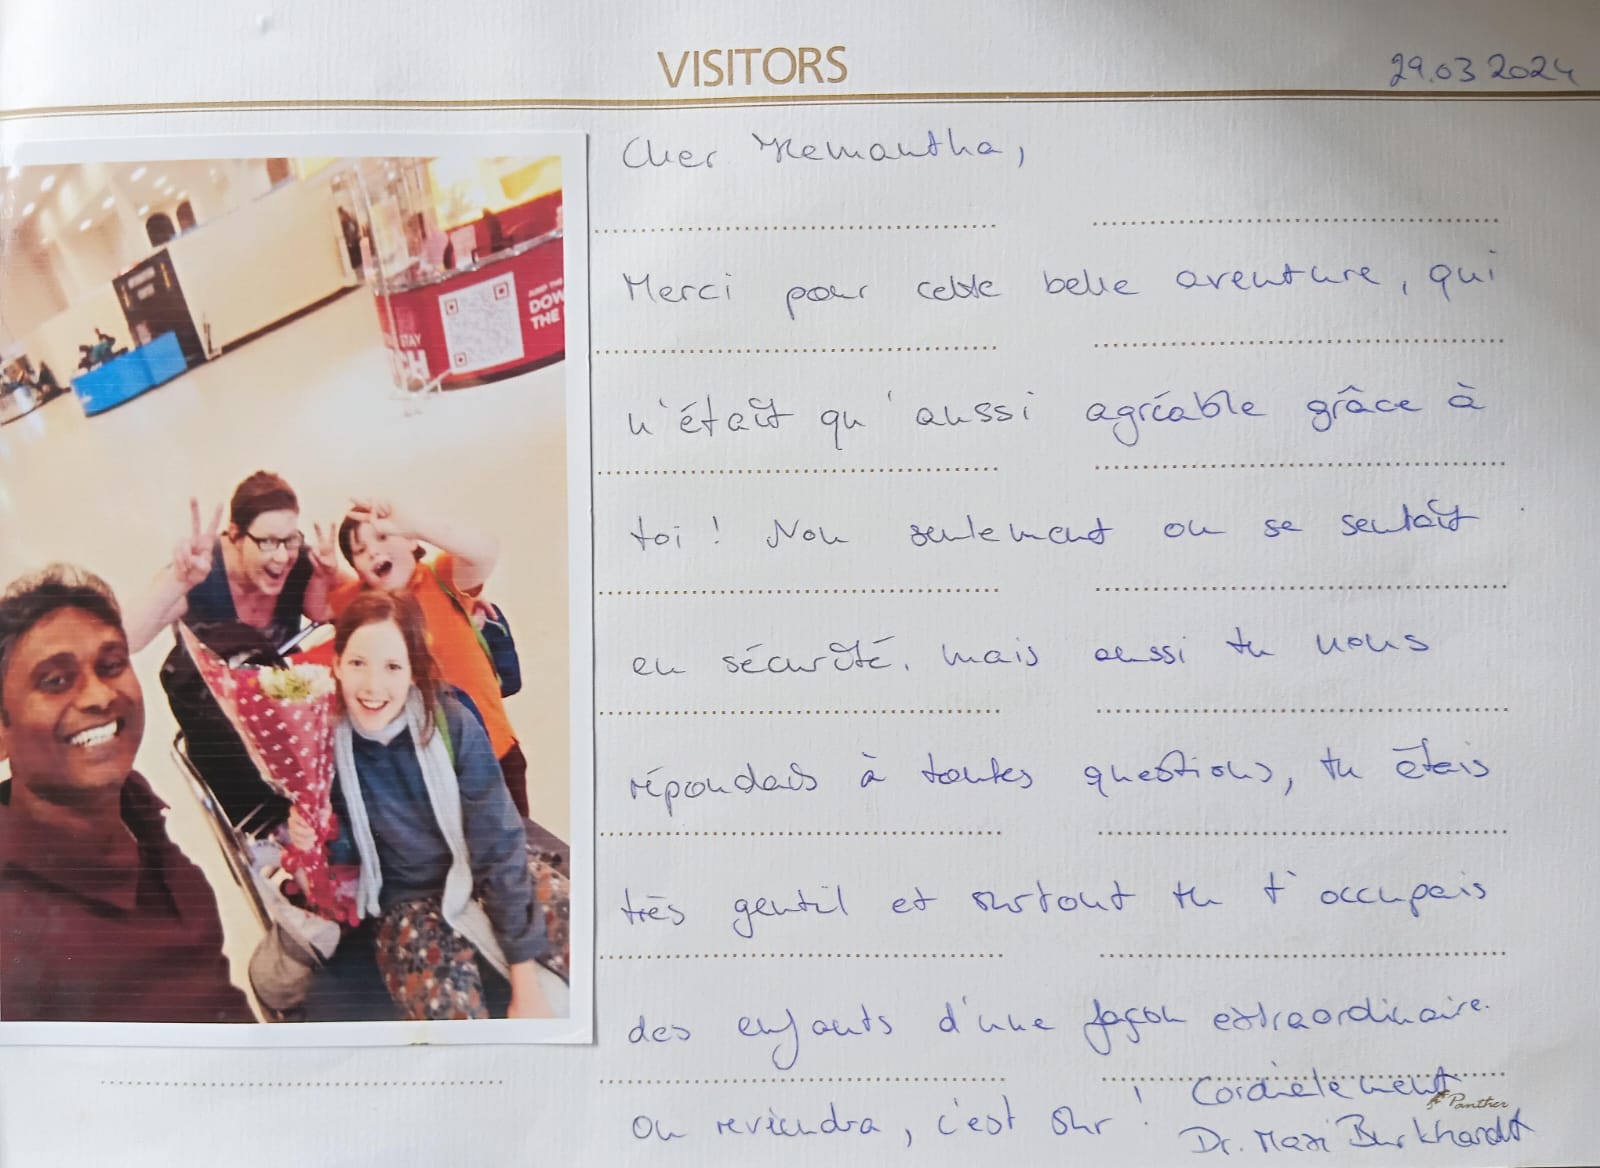 VISITORS
29.03 2024
Cher Hemantha,
Merci pour cette belle aventure, qui
n'étaît qu'aussi agréable grâce à
toi ! Non seulement on se sentaît
en sécurîté. mais aussi tu nous
répondais à toutes questions, tu êtais
très gentil et surtout tu t'occupais
des enfants d'une façon extraordinaire.
On reviendra, c'est sûr ! Cordièlement
Panther
Dr. Maxi Burkhardt
JUMP THE
DOW
THE
STAY
CH